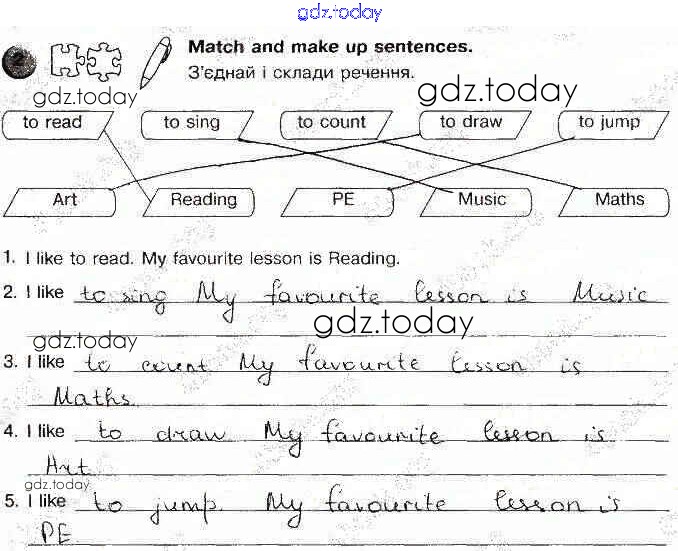 gdz.today
2
Match and make up sentences.
З'єднай і склади речення.
gdz.today
gdz.today
to read to sing to count to draw to jump
Art Reading PE Music Maths
1. I like to read. My favourite lesson is Reading.
2. I like to sing My favourite lesson is Music
gdz.today
gdz.today
3. I like to count My favourite lesson is
Maths.
4. I like to draw. My favourite lesson is
Art.
gdz.today
5. I like to jump. My favourite lesson is
PE